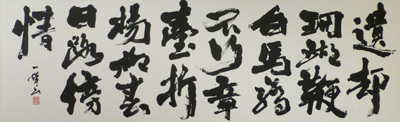 遺却
珊瑚鞭
白馬驕
不行章
臺折
楊柳春
日路傍
情